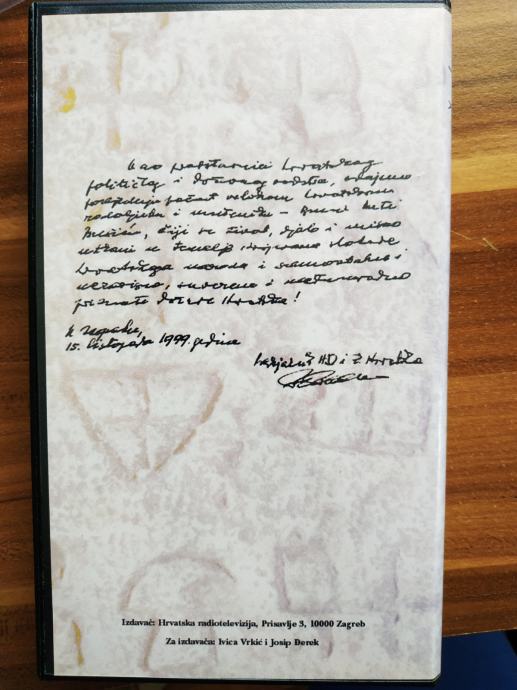 Kao predstavnici hrvatskog
političkog i državnog vodstva, odajemo
posljednju počast velikom hrvatskom
rodoljubu i mučeniku – Buni
Bušiću, čiji se život, djelo i misao
utkani u temelje slobode
hrvatskoga naroda i samostalne i
nezavisne, suverene i međunarodno
priznate države Hrvatske!
U Zagrebu,
15. listopada 1999. godine
HDZ
Izdavač: Hrvatska radiotelevizija, Prisavlje 3, 10000 Zagreb
Za izdavača: Ivica Vrkić i Josip Đerek